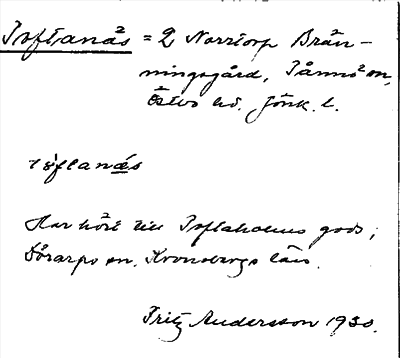 Toftanäs = 2 Norrtorp Brän-
ningsgård, Tånnö sn,
Östbo hd. Jönk. l.
tòftanä́s
Har hört till Toftaholms gods,
Dörarps sn. Kronobergs län.
Fritz Andersson 1930.